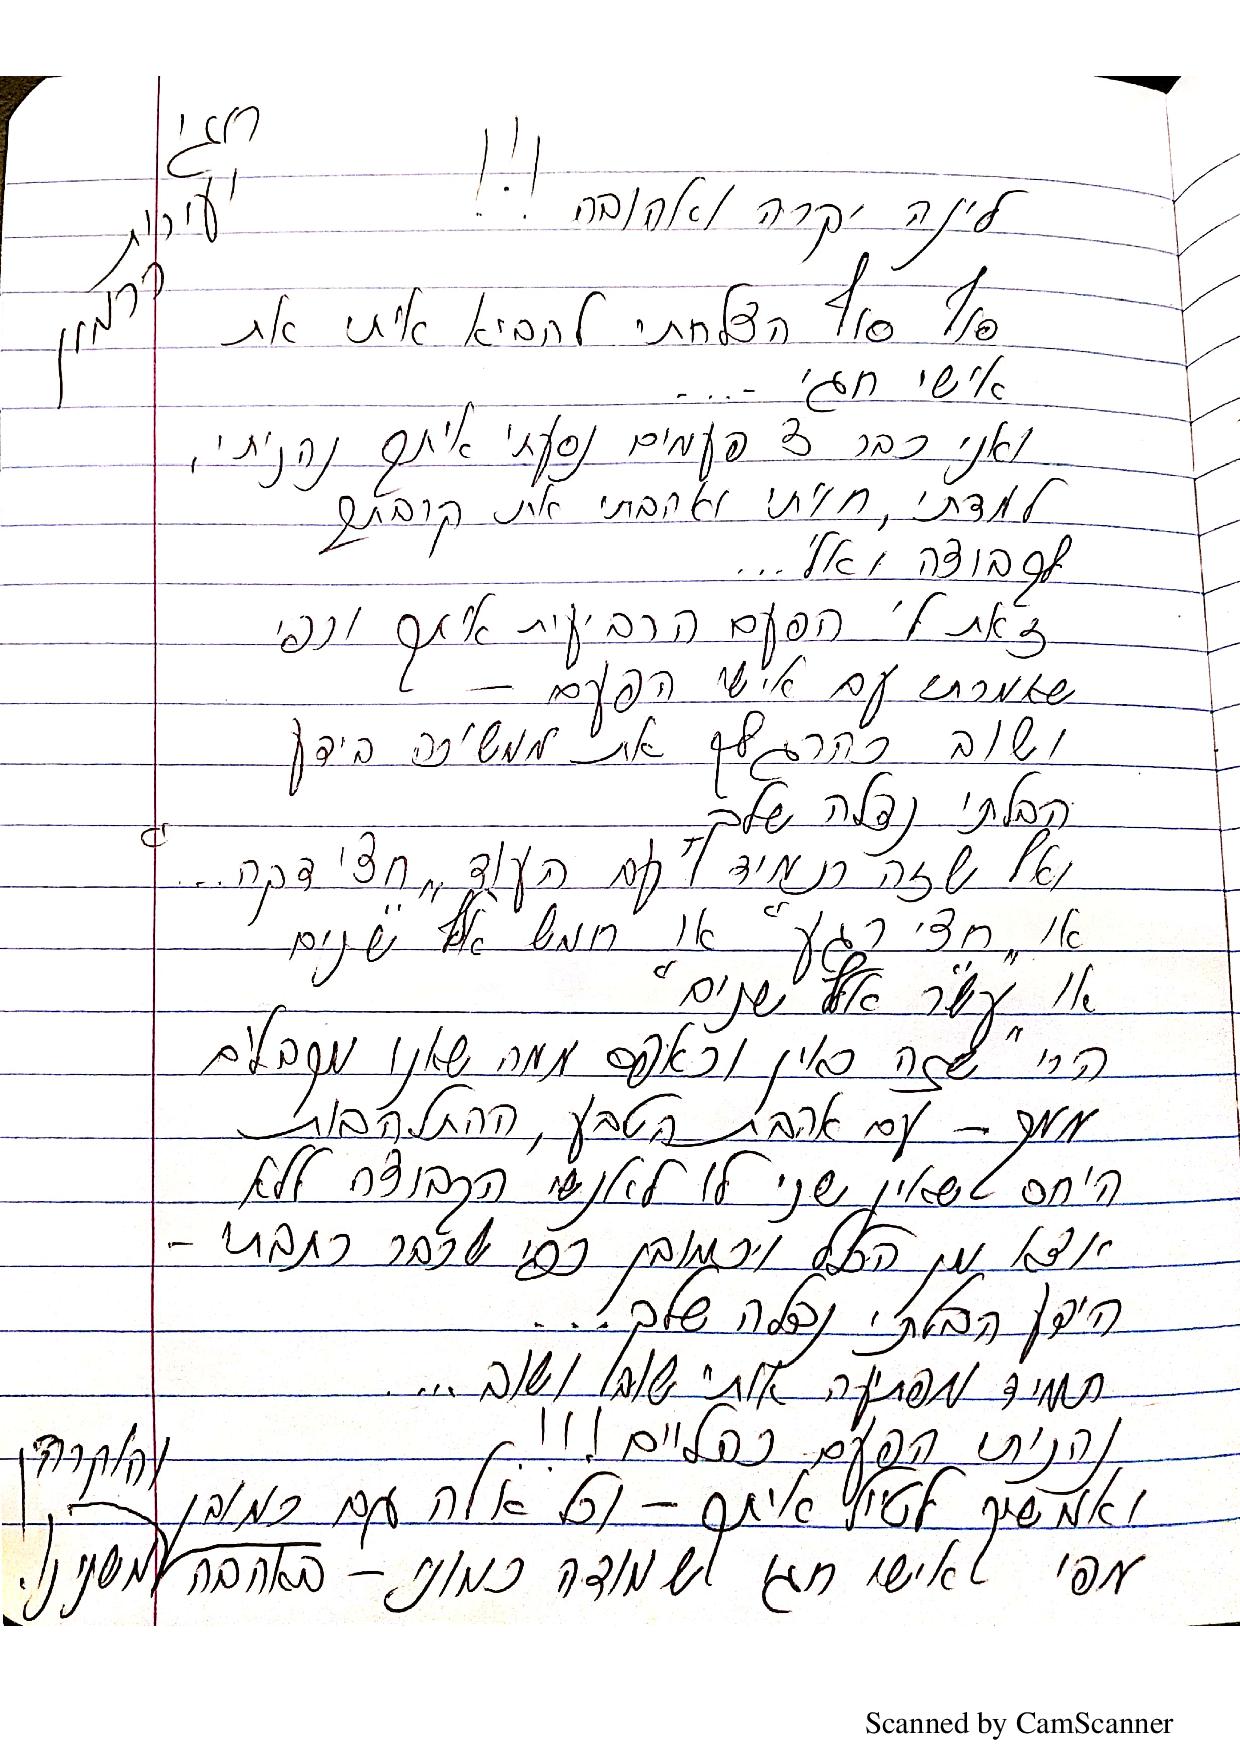 חגי
יערית
כרמון
לינה יקרה ואהובה !!!
סוף סוף הצלחתי להביא איתי את
אישי חגי ....
ואני כבר 3 פעמים נסעתי איתך נהניתי,
למדתי, חויתי ואהבתי את קרבתך
לקבוצה ואלי...
זאת לי הפעם הרביעית איתך וכפי
שאמרתי עם אישי הפעם –
ושוב כהרגלך את ממשיכה בידע
הבלתי נדלה שלך
ואף שזה תמיד עם העוד "חצי דקה"...
או "חצי רגע" או חמש "שנים
או "עשר שנים"
הרי "שזה כאין וכאפס ממה שאנו מקבלים
ממך – עם אהבת הטבע, ההתלהבות
היחס שאין שני לו לאנשי הקבוצה ללא
יוצא מן הכלל וכמובן כפי שכבר כתבתי –
הידע הבלתי נדלה שלך....
תמיד מפתיעה אותי שוב ושוב ...
נהניתי הפעם כפליים !!!
ואמשיך לטייל איתך – וכל אלה עם כמובן והוקרה
מפי אישי חגי שמודה כמוני – באהבה משנינו.
Scanned by CamScanner